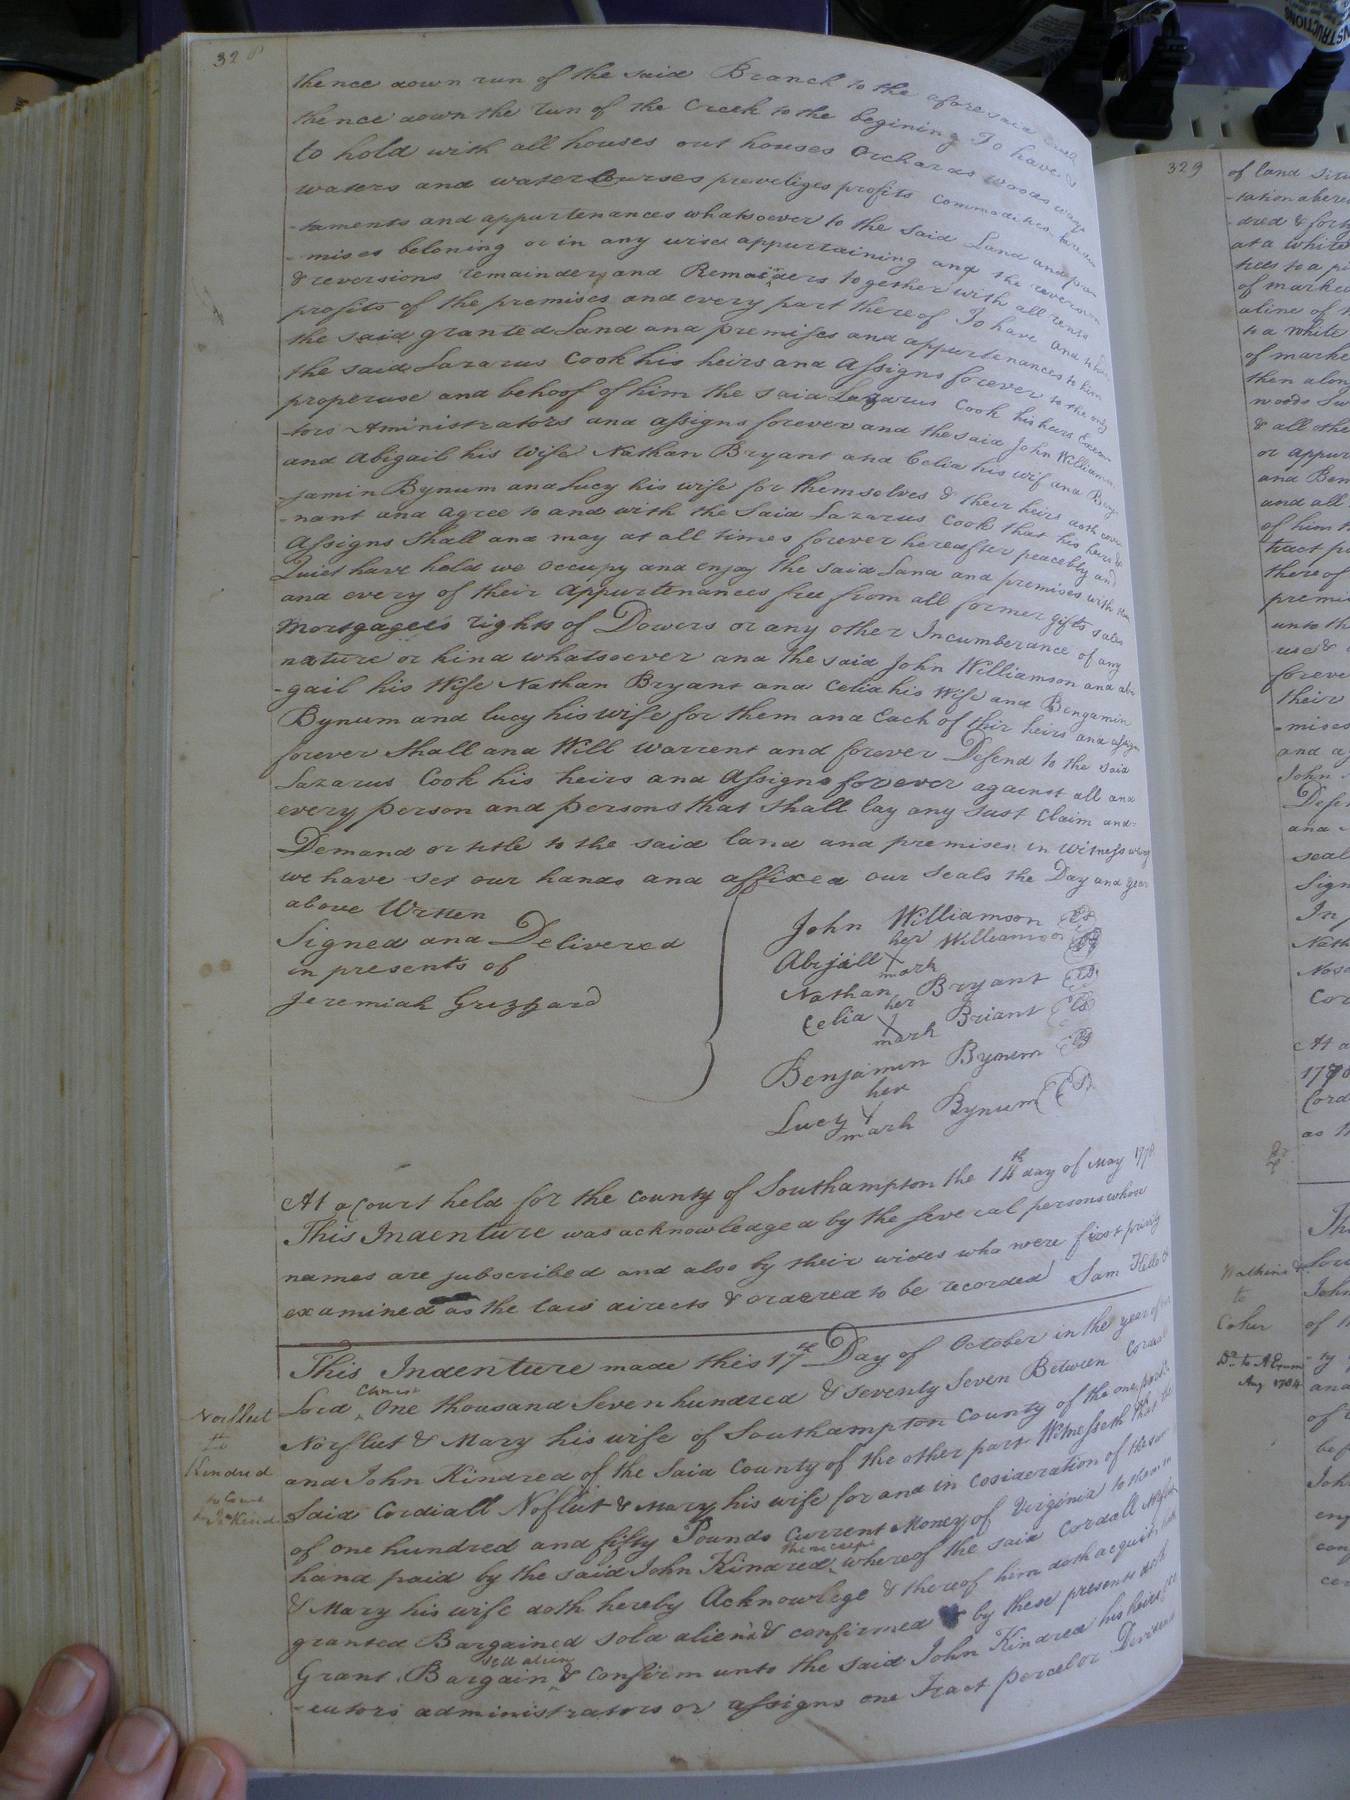 328
thence down run of the said Branch to the aforesaid
thence down the run of the Creek to the begining To have &
to hold with all houses out houses Orchards Woods ways
waters and water Courses preveliges profits Commodities
-taments and appurtenances whatsoever to the said Land and pre
-mises beloning or in any wise appurtaining and the reversion
& reversions remainder and Remainders together with all rents
profits of the premises and every part thereof To have and to hold
the said granted Land and premises and appurtenances to him
the said Lazarus Cook his heirs and Assigns forever to the only
proper use and behoof of him the said Lazarus Cook his heirs Execu
-tors Aministrators and assigns forever and the said John Williamson
and Abigail his Wife Nathan Bryant and Celia his wif and Benj
-jamin Bynum and Lucy his wife for themselves & their heirs doth cove
-nant and agree to and with the Said Lazarus Cook that his heirs &
Assigns Shall and may at all times forever hereafter peacebly and
Quiet have hold use occupy and enjoy the said Land and premises with
and every of their Appurtenances free from all former gifts sales
Mortgagees rights of Dowers or any other Incumberance of any
nature or kind whatsoever and the said John Williamson and abi
-gail his Wife Nathan Bryant and Celia his Wife and Bengamin
Bynum and lucy his wife for them and Each of thir heirs and assigns
forever Shall and Will Warrent and forever Defend to the said
Lazarus Cook his heirs and Assigns forever against all and
every person and persons that Shall lay any Just Claim and
Demand or title to the said land and premises in Witness whereof
we have set our hands and affixed our Seals the Day and year
above Written
Signed and Delivered
in presents of
Jeremiah Grizzard
John Williamson LS
her
Abigaill X Williamson LS
mark
Nathan Bryant LS
her
Celia X Briant LS
mark
Benjamin Bynum LS
her
Lucy X Bynum LS
mark
At a Court held for the County of Southampton the 14th day of May 1778
This Indenture was acknowledged by the several persons whose
names are subscribed and also by their wives who were first privily
examined as the law directs & ordered to be recorded Sam Kello
This Indenture made this 17th Day of October in the year of our
Lord Christ One thousand Seven hundred & Seventy Seven Between Cordall
Norfleet & Mary his wife of Southampton County of the one part
and John Kindred of the Said County of the other part Witnesseth that the
Said Cordiall Nofleit & Mary his wife for and in Cosideration of the sum
of one hundred and fifty Pounds Current Money of Virginia to them in
hand paid by the said John Kindred the receipt whereof the said Cordall
& Mary his wife doth hereby Acknowlege & thereof him doth acquit
granted Bargained sold alien'd & confirmed & by these presents doth
Grant Bargain sell alien & confirm unto the said John Kindred his heirs
-cutors administrators or assigns one Tract percel or Devidend
Norfleet
to
Kindred
329
of land
-tation
-dred &
at a white
trees to a
of marked
a line of
to a white
of marke
then along
woods
& all othe
or appur
and Ben
and all
of him
tract
thereof
premi
unto th
use &
foreve
their
-mises
and
John
Defen
and
seal
Sign
In
Nath
Cor
At a
Cord
as
Watkins
to
Coker
Aug 1784
John
of
-ty
and
of
bef
John